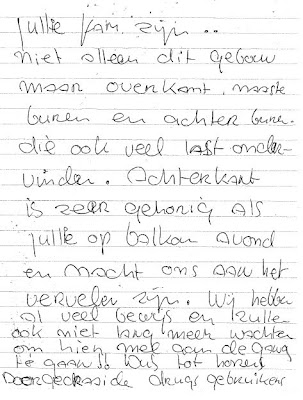 jullie fam. zijn ..
niet alleen dit gebouw
maar overkant, naaste
buren en achter buren.
die ook veel last onder-
vinden. Achterkant
is zeer gehorig als
jullie op balkon avond
en nacht ons aan het
vervelen zijn. Wij hebben
al veel bewijs en zullen
ook niet lang meer wachten
om hier mee aan de gang
te gaan!! Dus tot horens
Doorgedraaide drugs gebruiker